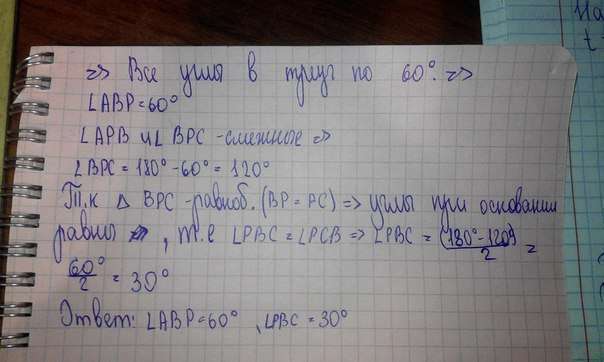 => Все углы в треуг по 60°. =>
∠ABP=60°
∠APB и ∠BPC -смежные =>
∠BPC = 180°-60° = 120°
Т.к △ BPC -равноб. (BP = PC) => углы при основании
равны, т.е ∠PBC = ∠PCB => ∠PBC = (180°-120°)/2 =
60°/2 = 30°
Ответ: ∠ABP=60°, ∠PBC = 30°
На
t